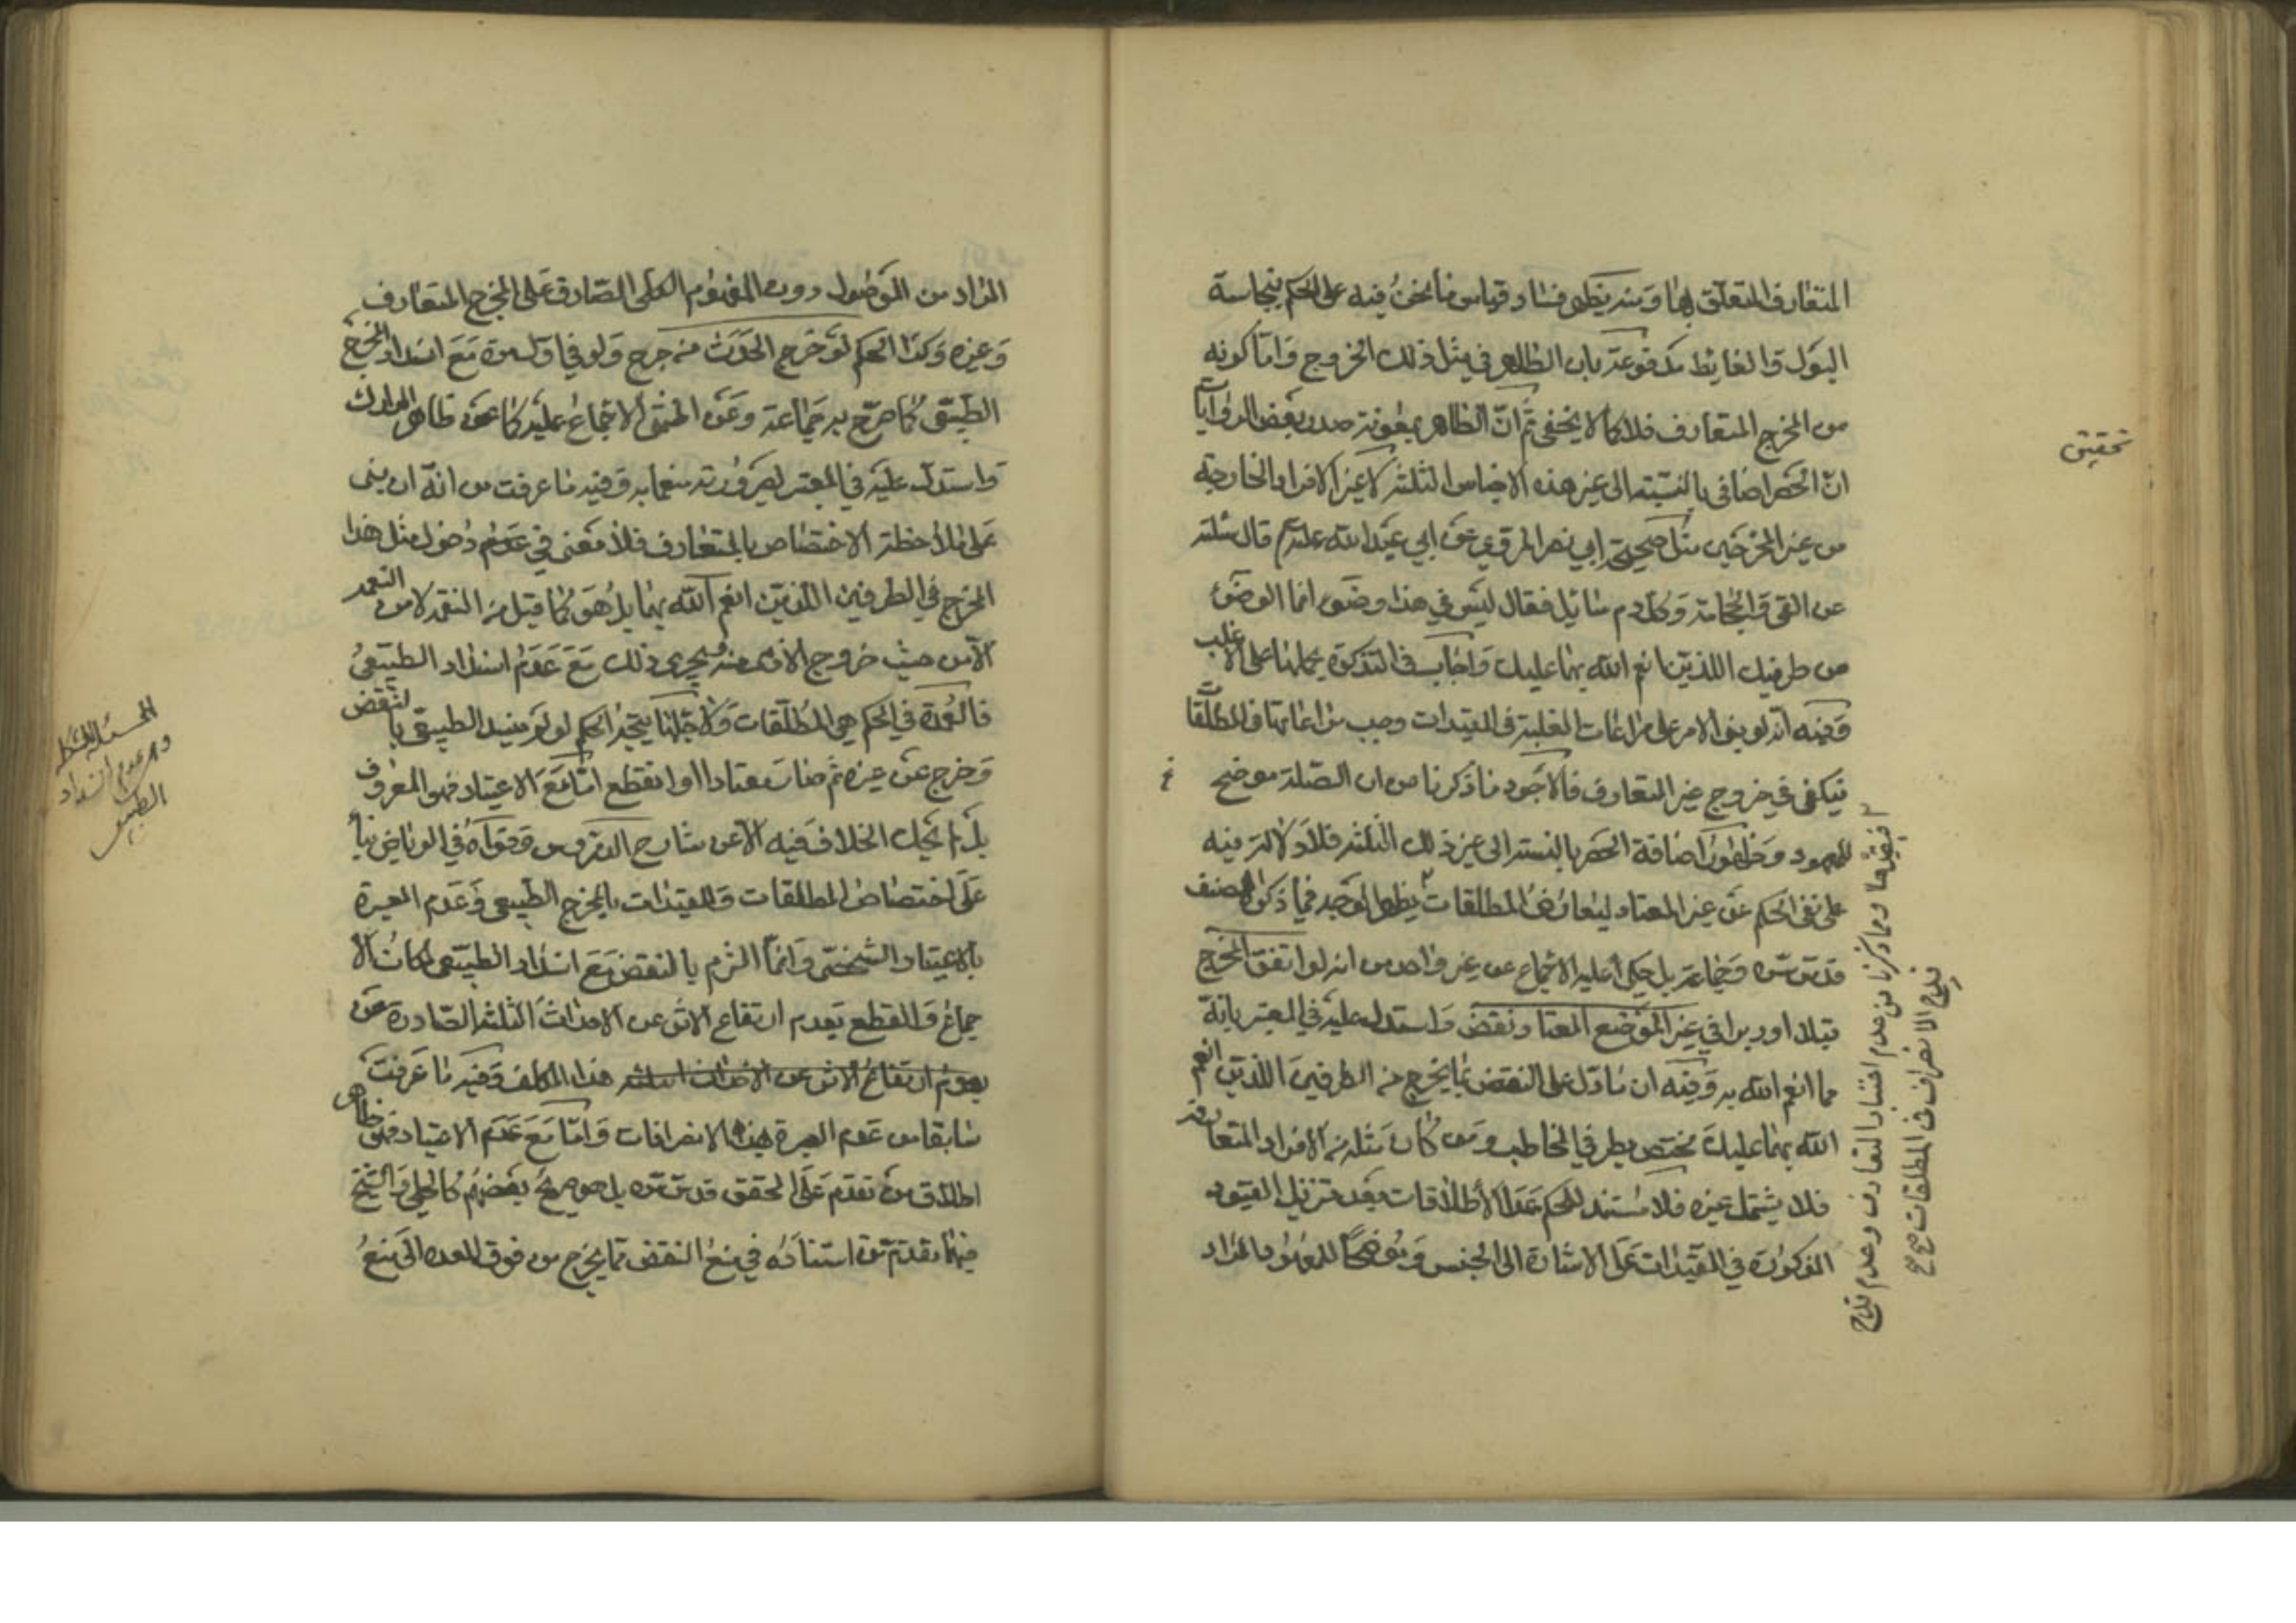 المتعارف المتعلق بها ومنه يظهر فساد قياس ما نحن فيه على الحكم بنجاسة
البول والغايط مدفوعة بان الظاهر في مثل ذلك الخروج واما كونه
من المخرج المتعارف فلا كما لا يخفى ثم ان الظاهر بمعونة صدر بعض الروايات
ان الحصر اضافي بالنسبة الى غير هذه الاجناس الثلثة لا غير الافراد الخارجة
من غير المخرجين مثل صحيحة ابي نصر المرقوي عن ابي عبد الله عليه قال سئلته
عن القي والحجامة وكل دم سايل فقال ليس في هذا وضوء انما الوضوء
من طرفيك اللذين انعم الله بهما عليك واجاب في التذكرة بحملها على الاغلب
وفيه انه لو بنى الامر على مراعات الغلبة في المقيدات وجب مراعاتها في المطلقات
فيكفي في خروج غير المتعارف فالاجود ما ذكرنا من ان الصلة موضح
للمعهود و اضافة الحصر بالنسبة الى غير ذلك الثلثة فلا دلالة فيه
على نفى الحكم عن غير المعتاد ليعارض المطلقات يظهر الوجه فيما ذكره المصنف
قدس سره وجماعة بل حكى عليه الاجماع عن غير واحد من انه لو اتفق المخرج
قبلا او دبرا في غير الموضع المعتاد نقض واستدل عليه في المعتبر بانه
مما انعم الله به وفيه ان ما دل على النقض بما يخرج من الطرفين اللذين انعم
الله بهما عليك مختص بطرفي المخاطب ومن كان مثله من الافراد المتعارفة
فلا يشمل غيره فلا مستند للحكم عدا الاطلاقات بعد تنزيل القيود
المذكورة في المقيدات على الاشارة الى الجنس وموضحا للمعهود المراد
تحقيق
فيقيدها ومما ذكرنا من عدم اعتبار التعارف وعدم قدح
قدح الانصراف في المطلقات صح
المراد من الموصول دون المفهوم الكلى الصادق على المخرج المتعارف
وغيره وكذا الحكم لو خرج الحدث من جرح ولو في اول مرة مع انسداد المخرج
الطبيعي كما صرح به جماعة وعن المنتهى الاجماع عليه كما عن ظاهر المدارك
واستدل عليه في المعتبر لصيرورته منعما به وفيه ما عرفت من انه ان بنى
على ملاحظة الاختصاص بالمتعارف فلا معنى في عدم دخول مثل هذا
المخرج في الطرفين اللذين انعم الله بهما بل هو كما قيل من النقم لا من النعم
الا من حيث خروج الاذى منه ويجري ذلك مع عدم انسداد الطبيعي
فالعمدة في الحكم هي المطلقات ولاجلها يتجه الحكم لو لم ينسد الطبيعي بالنقض
وخرج عن غيره ثم صارت معتادا او انقطع اما مع الاعتياد فهو المعروف
بل لم نحك الخلاف فيه الا عن شارح الدروس وقواه في الرياض بناء
على اختصاص المطلقات والمقيدات بالمخرج الطبيعي وعدم العبرة
بالاعتياد الشخصي وانما التزم بالنقض مع انسداد الطبيعي لمكان الا
جماع والقطع بعدم ارتفاع الاثر عن الاحداث الثلثة الصادرة عن
هذا المكلف وفيه ما عرفت
سابقا من عدم العبرة بهذه الانصرافات واما مع عدم الاعتياد فهو ظاهر
اطلاق من تقدم على المحقق قدس سره بل هو صريح بعضهم كالحلي والشيخ
فيما تقدم من استناده في منع النقض مما يخرج من فوق المعدة الى منع
انسداد
الطبيعي